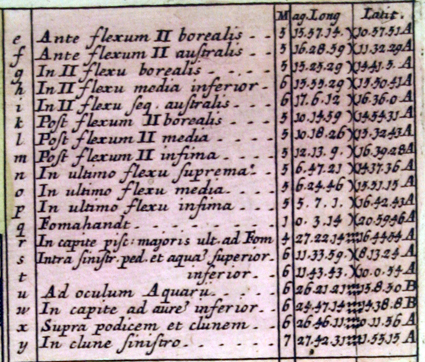 M ag. Long Latit.
e Ante flexum II borealis 5 15.57.14. )( 10.57.51 A
f Ante flexum II australis 5 16.28.59 )( 11.32.29 A
g In II flexu borealis 5 15.25.29 )( 14.41.5. A
h In II flexu media inferior 6 15.55.29 )( 15.50.41 A
i In II flexu seq. australis 6 17.6.12 )( 16.36.0 A
k Post flexum II borealis 5 10.14.59 )( 14.54.31 A
l Post flexum II media 5 10.18.26 )( 15.32.43 A
m Post flexum II infima 5 12.13.9. )( 16.39.28 A
n In ultimo flexu suprema 5 6.47.21 )( 14.37.36 A
o In ultimo flexu media 5 6.24.46 )( 15.51.15 A
p In ultimo flexu infima 5 5.7.1. )( 16.42.43 A
q Fomahandt 1 0.3.14 )( 20.59.46 A
r In capite pisc: majoris ult. ad Fom 4 27.22.14 A
s Intra sinistr. ped. et aquã superior 6 11.33.59. )( 8.13.24 A
t inferior 6 11.43.43. )( 10.0.54 A
u Ad oculum Aquarii 6 26.21.21 B
w In capite ad aurẽ inferior 6 24.47.14 B
x Supra podicem et clunem 6 26.46.11 A
y In clune sinistro 7 27.42.31 A